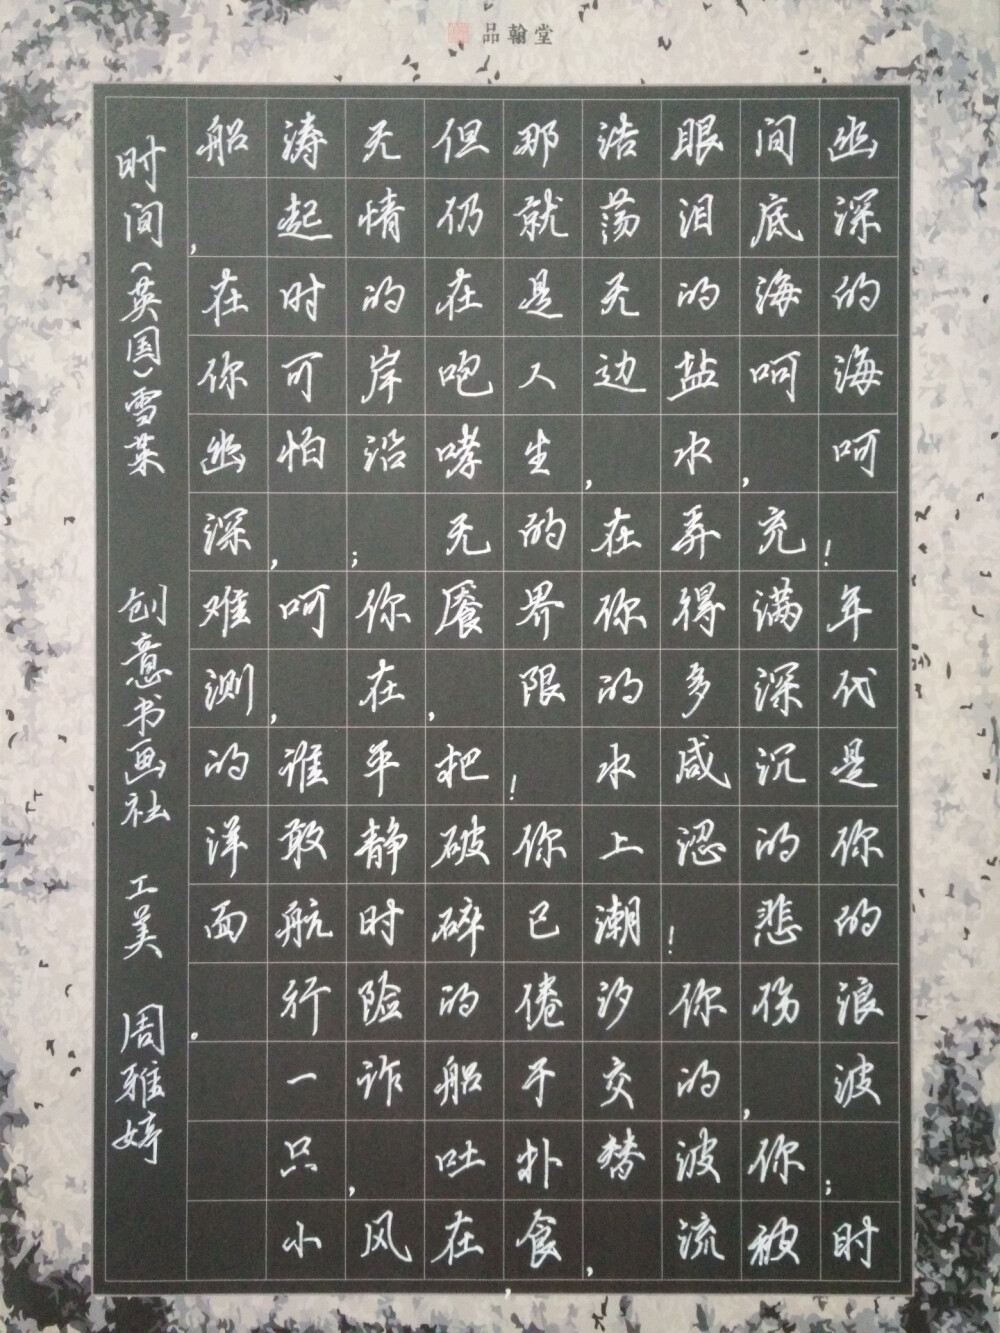 品翰堂
幽深的海呵！年代是你的浪波；时
间底海呵，充满深沉的悲伤，你被
眼泪的盐水弄得多咸涩！你的波流
浩荡无边，在你的水上潮汐交替，
那就是人生的界限！你已倦于扑食，
但仍在咆哮无餍，把破碎的船吐在
无情的岸沿；你在平静时险诈，风
涛起时可怕，呵，谁敢航行一只小
船，在你幽深难测的洋面。
时间（英国）雪莱 创意书画社 工美 周雅婷